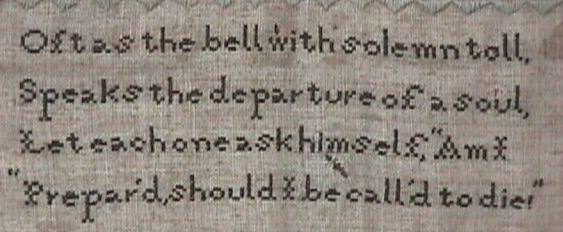 Oft as the bell with solemn toll,
Speaks the departure of a soul,
Let each one ask himself, "Am I
"Prepar'd, should I be call'd to die!"